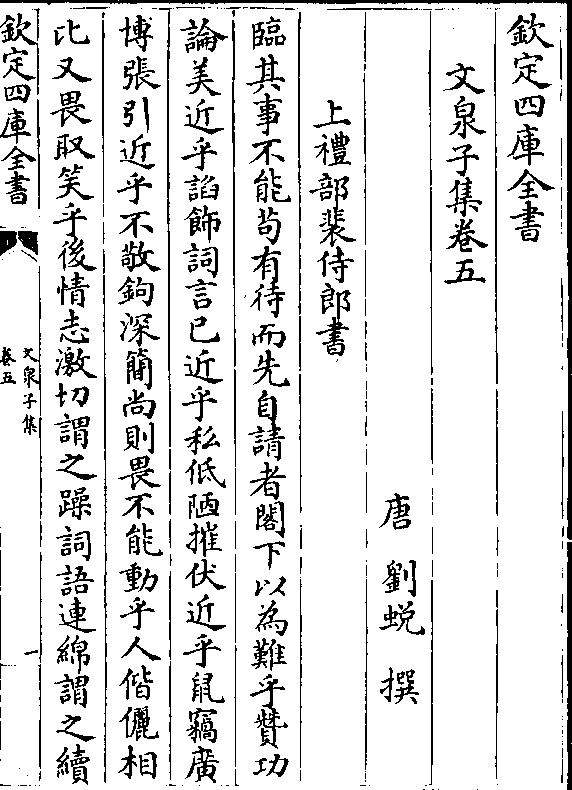 欽定四庫全書
文泉子集卷五
唐 劉蛻 撰
上禮部裴侍郎書
臨其事不能苟有待而先自請者閣下以為難乎贊功
論美近乎謟飾詞言已近乎私低陋摧伏近乎鼠竊廣
博張引近乎不敬鉤深簡尚則畏不能動乎人偕儷相
比又畏取笑乎後情志激切謂之躁詞語連綿謂之續
欽定四庫全書
文泉子集
卷五
一